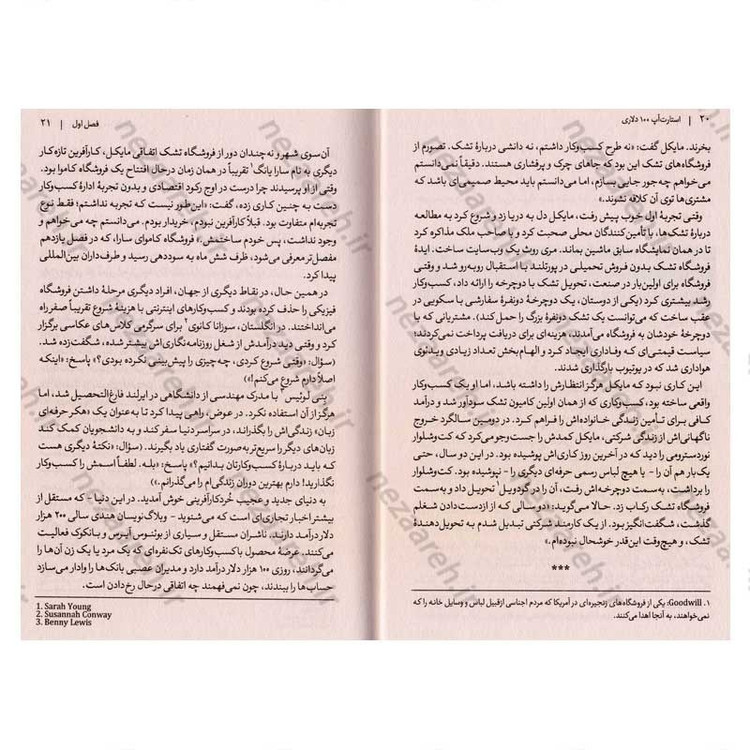 ۲۰ | استارت‌آپ ۱۰۰ دلاری
بخرند. مایکل گفت: «نه طرح کسب‌وکار داشتم، نه دانشی دربارهٔ تشک. تصورم از
فروشگاه‌های تشک این بود که جاهای چرک و پرفشاری هستند. دقیقاً نمی‌دانستم
می‌خواهم چه‌جور جایی بسازم، اما می‌دانستم باید محیط صمیمی‌ای باشد که
مشتری‌ها توی آن کلافه نشوند.»
وقتی تجربهٔ اول خوب پیش رفت، مایکل دل به دریا زد و شروع کرد به مطالعه
دربارهٔ تشک‌ها، با تأمین‌کنندگان محلی صحبت کرد و با صاحب ملک مذاکره کرد
تا در همان نمایشگاه سابق ماشین بماند. مری روث یک وب‌سایت ساخت. ایدهٔ
فروشگاه تشک بدون فروش تحمیلی در پورتلند با استقبال روبه‌رو شد و وقتی
فروشگاه برای اولین‌بار در صنعت، تحویل تشک با دوچرخه را ارائه داد، کسب‌وکار
رشد بیشتری کرد (یکی از دوستان، یک دوچرخهٔ سفارشی با سکویی در
عقب ساخت که می‌توانست یک تشک دونفرهٔ بزرگ را حمل کند). مشتریانی که با
دوچرخهٔ خودشان به فروشگاه می‌آمدند، هزینه‌ای برای دریافت پرداخت نمی‌کردند؛
سیاست قیمتی‌ای که وفاداری ایجاد کرد و الهام‌بخش تعداد زیادی ویدئوی
هواداری شد که در یوتیوب بارگذاری شدند.
این کاری نبود که مایکل هرگز انتظارش را داشته باشد، اما او یک کسب‌وکار
واقعی ساخته بود، کسب‌وکاری که از همان اولین کامیون تشک سودآور شد و درآمد
کافی برای تأمین زندگی خانواده‌اش را فراهم کرد. در دومین سالگرد خروج
ناگهانی‌اش از زندگی شرکتی، مایکل کمدش را جست‌وجو می‌کرد که کت‌وشلوار
نوردسترومی را دید که در آخرین روز کاری‌اش پوشیده بود. در این دو سال، حتی
یک‌بار هم آن را - یا هیچ لباس رسمی حرفه‌ای دیگری را - نپوشیده بود. کت‌وشلوار
را برداشت، به‌سمت دوچرخه‌اش رفت، آن را در گودویل¹ تحویل داد و به‌سمت
فروشگاه تشک رکاب زد. حالا می‌گوید: «دو سالی که از ازدست‌دادن شغلم
گذشت، شگفت‌انگیز بود. از یک کارمند شرکتی تبدیل شدم به تحویل‌دهندهٔ
تشک، و هیچ‌وقت این‌قدر خوشحال نبوده‌ام.»
***
۱. Goodwill: یکی از فروشگاه‌های زنجیره‌ای در آمریکا که مردم اجناسی ازقبیل لباس و وسایل خانه را که
نمی‌خواهند، به آنجا اهدا می‌کنند.
فصل اول | ۲۱
آن‌سوی شهر و نه چندان دور از فروشگاه تشک اتفاقی مایکل، کارآفرین تازه‌کار
دیگری به نام سارا یانگ¹ تقریباً در همان زمان درحال افتتاح یک فروشگاه کاموا بود.
وقتی از او پرسیدند چرا درست در اوج رکود اقتصادی و بدون تجربهٔ ادارهٔ کسب‌وکار
دست به چنین کاری زده، گفت: «این‌طور نیست که تجربه نداشتم؛ فقط نوع
تجربه‌ام متفاوت بود. قبلاً کارآفرین نبودم، خریدار بودم. می‌دانستم چه می‌خواهم و
وجود نداشت، پس خودم ساختمش.» فروشگاه کاموای سارا، که در فصل یازدهم
مفصل‌تر معرفی می‌شود، ظرف شش ماه به سوددهی رسید و طرف‌داران بین‌المللی
پیدا کرد.
در همین حال، در نقاط دیگری از جهان، افراد دیگری مرحلهٔ داشتن فروشگاه
فیزیکی را حذف کرده بودند و کسب‌وکارهای اینترنتی با هزینهٔ شروع تقریباً صفر راه
می‌انداختند. در انگلستان، سوزانا کانوی² برای سرگرمی کلاس‌های عکاسی برگزار
کرد و وقتی دید درآمدش از شغل روزنامه‌نگاری‌اش بیشتر شده، شگفت‌زده شد.
(سؤال: «وقتی شروع کردی، چه‌چیزی را پیش‌بینی نکرده بودی؟» پاسخ: «اینکه
اصلاً دارم شروع می‌کنم!»)
بنی لوئیس³ با مدرک مهندسی از دانشگاهی در ایرلند فارغ‌التحصیل شد، اما
هرگز از آن استفاده نکرد. در عوض، راهی پیدا کرد تا به‌عنوان یک «هکر حرفه‌ای
زبان» زندگی‌اش را بگذراند، در سراسر دنیا سفر کند و به دانشجویان کمک کند
زبان‌های دیگر را سریع‌تر به‌صورت گفتاری یاد بگیرند. (سؤال: «نکتهٔ دیگری هست
که باید دربارهٔ کسب‌وکارتان بدانیم؟» پاسخ: «بله. لطفاً اسمش را کسب‌وکار
نگذارید! دارم بهترین دوران زندگی‌ام را می‌گذرانم.»)
به دنیای جدید و عجیب خُردکارآفرینی خوش آمدید. در این دنیا - که مستقل از
بیشتر اخبار تجاری‌ای است که می‌شنوید - وبلاگ‌نویسان هندی سالی ۲۰۰ هزار
دلار درآمد دارند. ناشران مستقل و سیاری از بوئنوس آیرس و بانکوک فعالیت
می‌کنند. عرضهٔ محصول با کسب‌وکارهای تک‌نفره‌ای که یک مرد یا یک زن آن‌ها را
می‌گردانند، روزی ۱۰۰ هزار دلار درآمد دارد و مدیران عصبی بانک‌ها را وادار می‌سازد
حساب‌ها را ببندند، چون نمی‌فهمند چه اتفاقی درحال رخ‌دادن است.
1. Sarah Young
2. Susannah Conway
3. Benny Lewis
nezaareh.ir